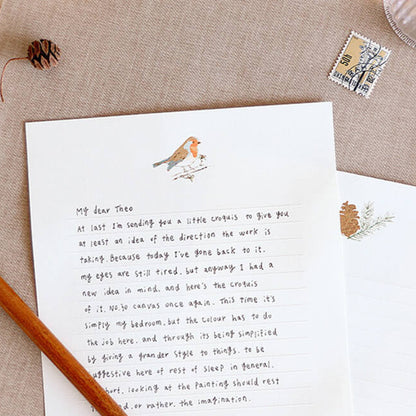 My dear Theo
At last I'm sending you a little croquis to give you
at least an idea of the direction the work is
taking. Because today I've gone back to it.
my eyes are still tired, but anyway I had a
new idea in mind, and here's the croquis
of it. No.30 canvas once again. This time it's
simply my bedroom, but the colour has to do
the job here, and through its being simplified
by giving a grander style to things, to be
suggestive here of rest or sleep in general.
short, looking at the painting should rest
or rather, the imagination.